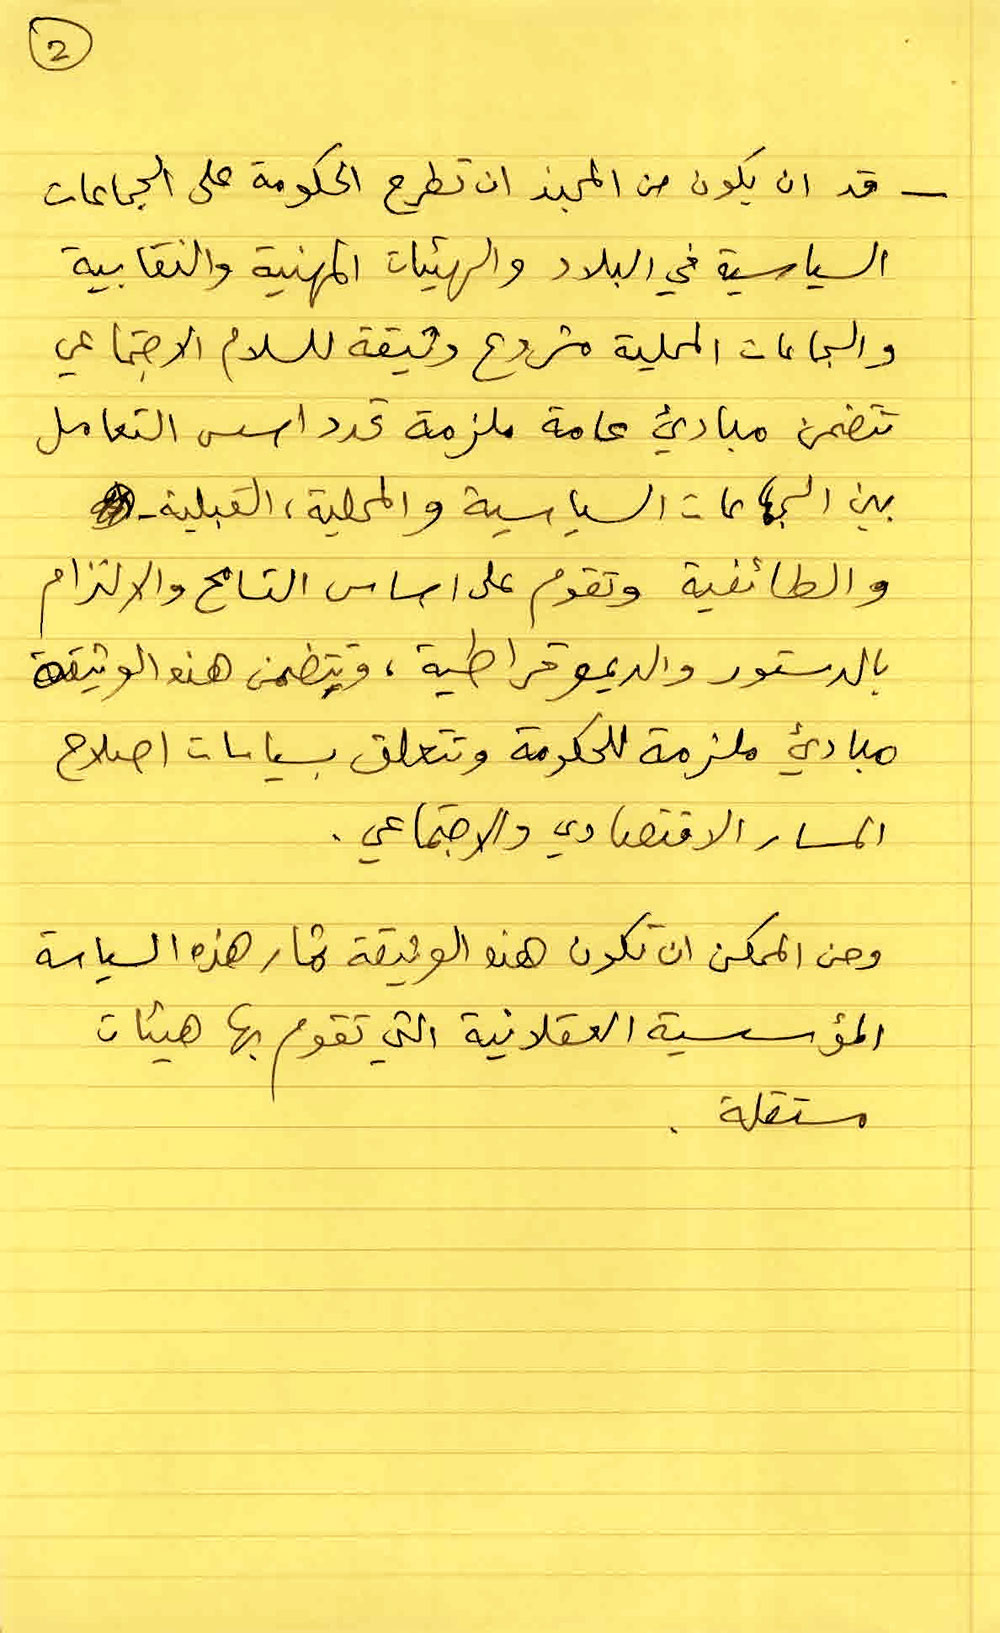 2
– قد ان يكون من المحبذ ان تطرح الحكومة على الجماعات
السياسية في البلاد والهيئات المهنية والنقابية
والجماعات المحلية مشروع وثيقة للسلام الاجتماعي
تتضمن مبادئ عامة ملزمة تحدد اسس التعامل
بين الجماعات السياسية والمحلية، القبلية
والطائفية وتقوم على اساس التسامح والالتزام
بالدستور والديموقراطية، وتتضمن هذه الوثيقة
مبادئ ملزمة للحكومة وتتعلق بسياسات اصلاح
المسار الاقتصادي والاجتماعي .
ومن الممكن ان تكون هذه الوثيقة ثمار هذه السياسة
المؤسسية العقلانية التي تقوم بها هيئات
مستقلة .